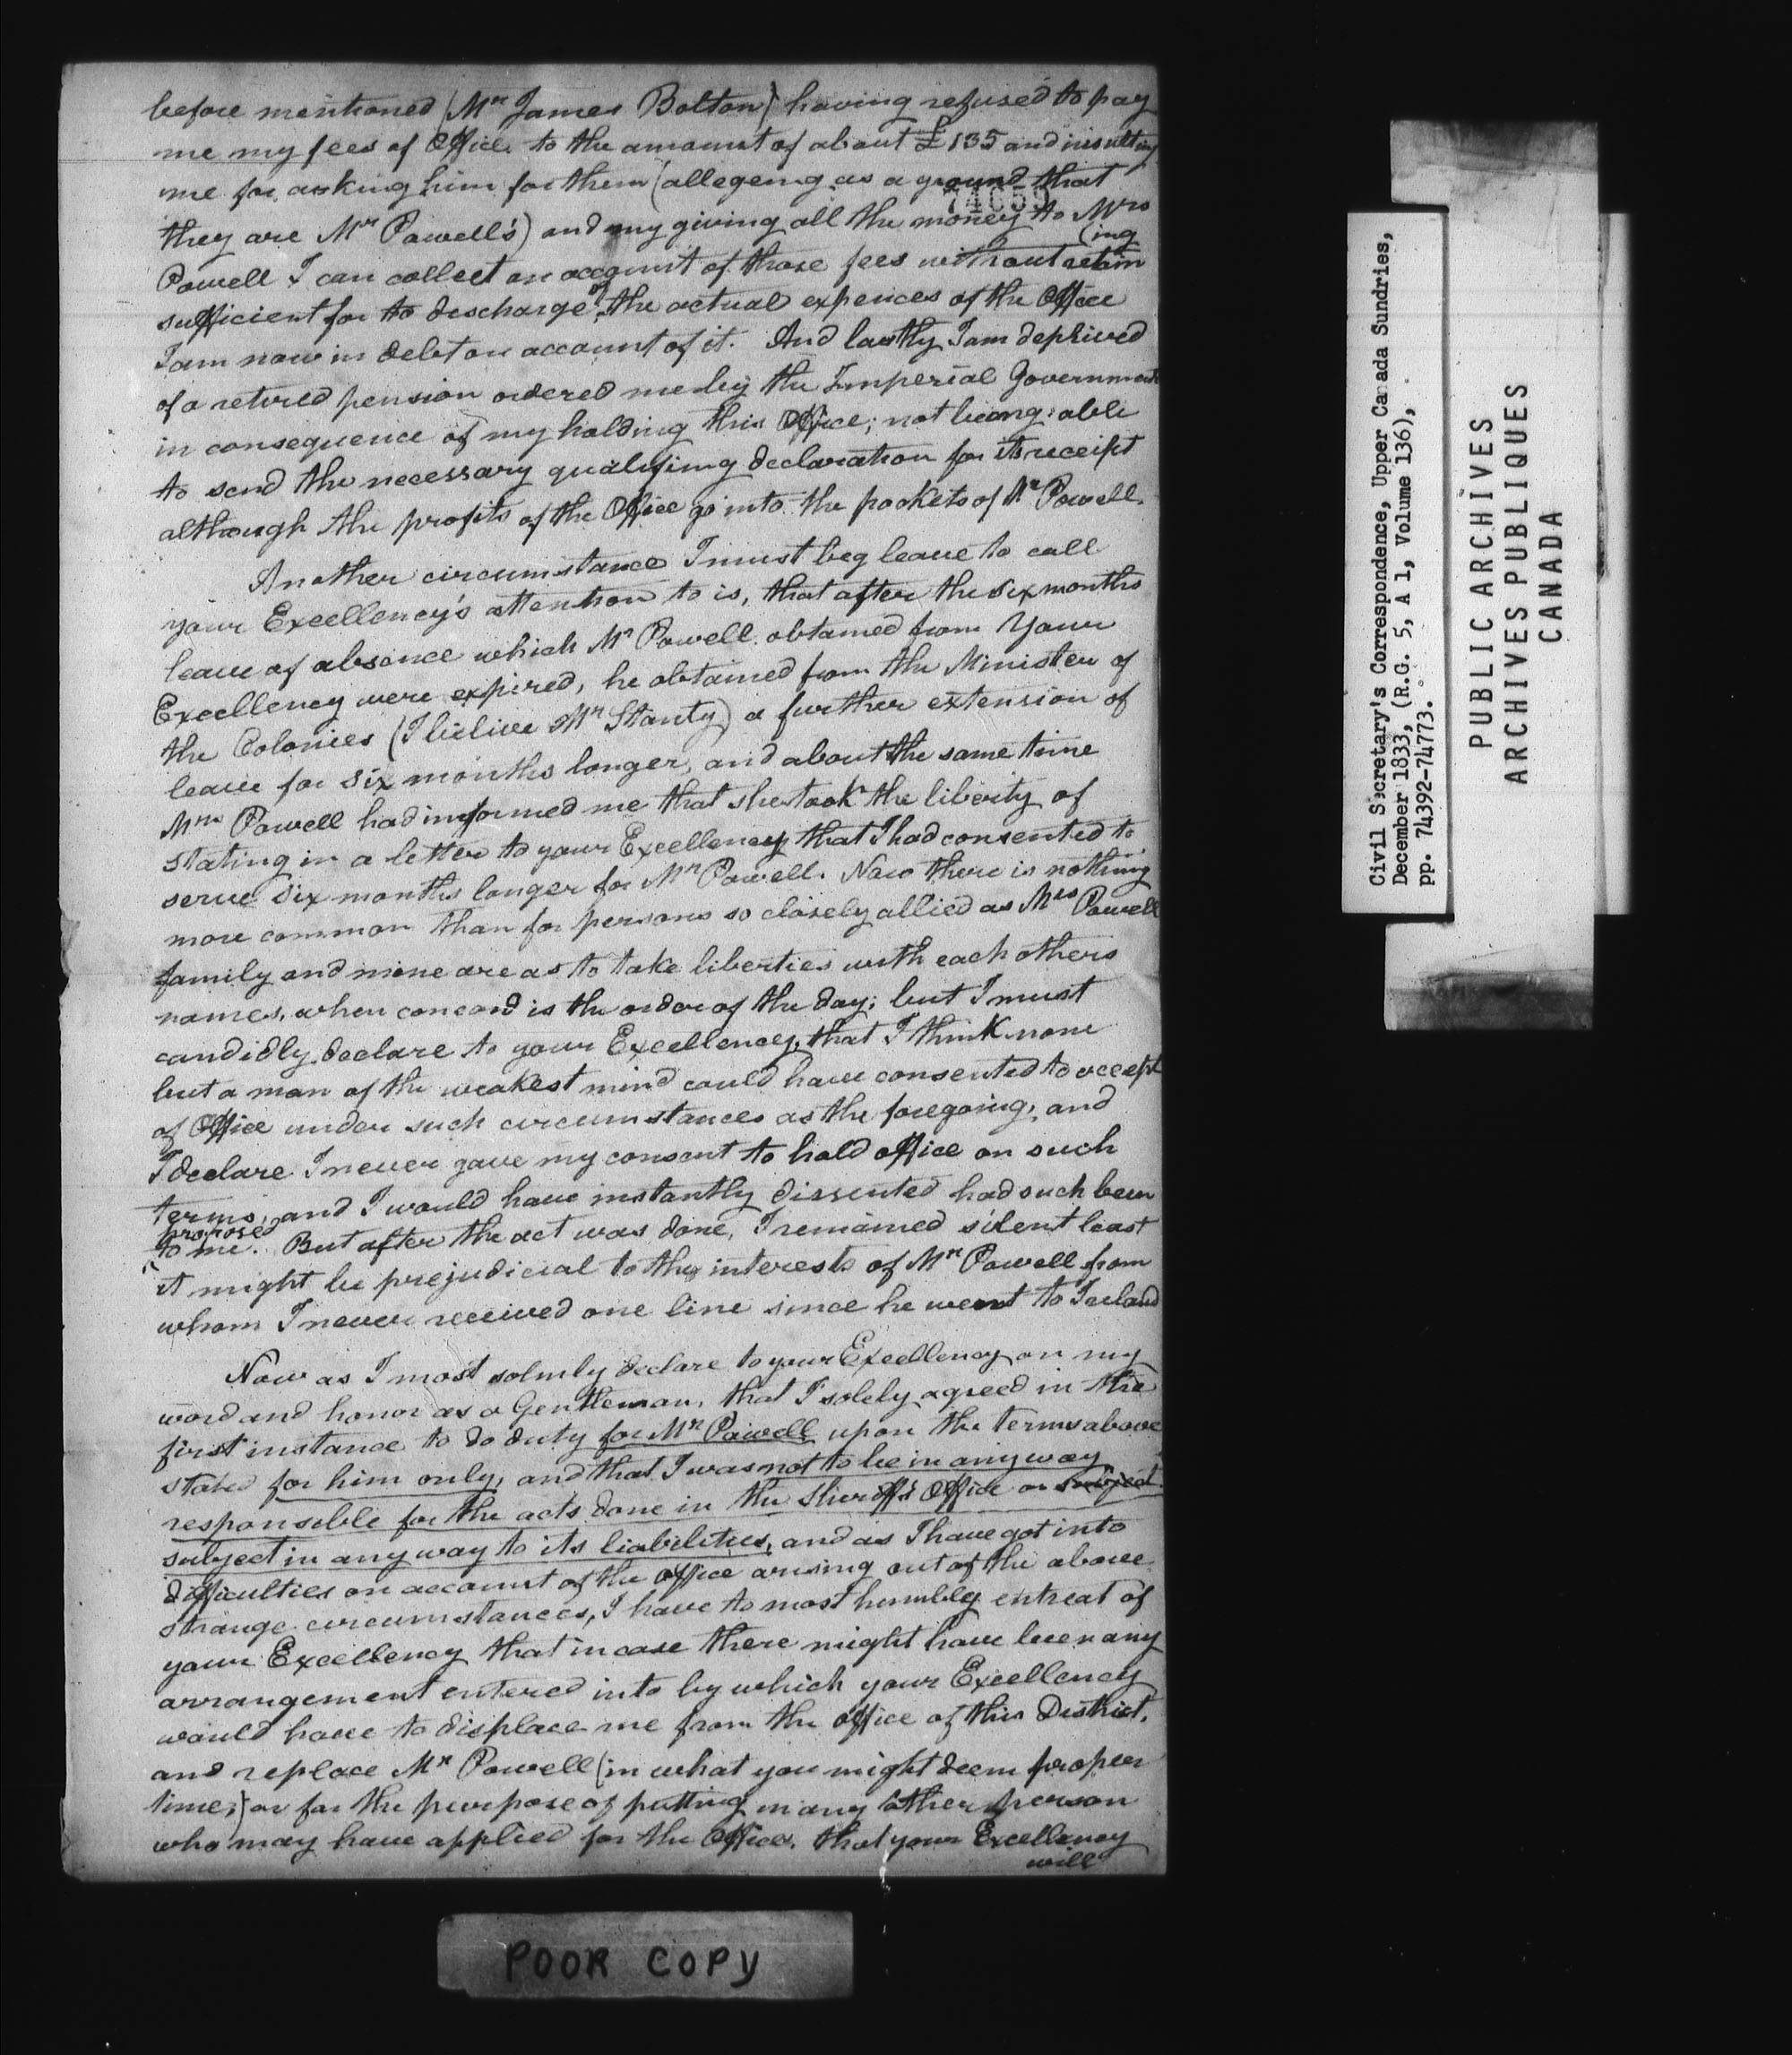 before mentioned (Mr James Bolton) having refused to pay
me my fees of Office to the amount of about £135 and insulting
me for asking him for them (allegeing as a ground that
74659
they are Mr Powell's) and my giving all the money to Mrs
Powell I can collect on account of those fees without retain
(ing
sufficient for to discharge of the actual expences of the Office
I am now in debt on account of it. And lastly I am deprived
of a retired pension ordered me by the Imperial Government
in consequence of my holding this Office; not being able
to send the necessary qualifing declaration for its receipt
although the profits of the Office go into the pockets of Mr Powell.
Another circumstance I must beg leave to call
your Excellency's attention to is, that after the six months
leave of absence which Mr Powell obtained from Your
Excellency were expired, he obtained from the Minister of
the Colonies (I belive Mr Stanly) a further extension of
leave for six months longer, and about the same time
Mrs Powell had informed me that she took the liberty of
stating in a letter to your Excellency that I had consented to
serve six months longer for Mr Powell. Now there is nothing
more common than for persons so closely allied as Mrs Powell
family and mine are as to take liberties with each others
names, when concord is the order of the day; but I must
candidly declare to your Excellency, that I think none
but a man of the weakest mind could have consented to accept
of Office under such circumstances as the foregoing, and
I declare I never gave my consent to hold office on such
terms, and I would have instantly dissented had such been
proposed
to me. But after the act was done, I remained silent least
it might be prejudicial to the interests of Mr Powell from
whom I never received one line since he went to Ireland
Now as I most solmly declare to your Excellency on my
word and honor as a Gentleman, that I solely agreed in the
first instance to do duty for Mr Powell upon the terms above
stated for him only, and that I was not to be in any way
responsible for the acts done in the Sheriff's Office or subject
subject in any way to its liabilities, and as I have got into
difficulties on account of the office arising out of the above
strange circumstances, I have to most humbly entreat of
your Excellency that in case there might have been any
arrangement entered into by which your Excellency
would have to displace me from the office of this District,
and replace Mr Powell (in what you might deem proper
time,) or for the purpose of putting in any other person
who may have applied for the Office, that your Excellency
will
POOR COPY
Civil Secretary's Correspondence, Upper Canada Sundries,
December 1833, (R.G. 5, A 1, Volume 136),
pp. 74392-74773.
PUBLIC ARCHIVES
ARCHIVES PUBLIQUES
CANADA